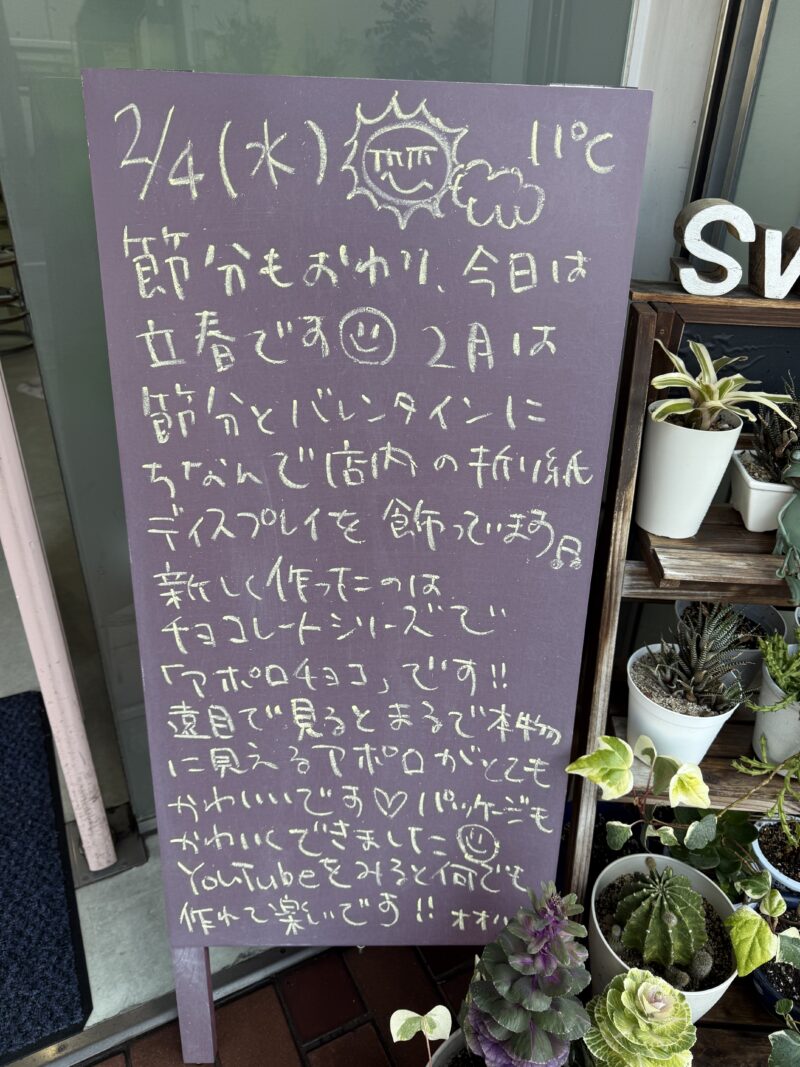 2/4(水) 11℃
節分もおわり、今日は
立春です 2月は
節分とバレンタインに
ちなんで店内の折り紙
ディスプレイを飾っています♫
新しく作ったのは
チョコレートシリーズで
「アポロチョコ」です!!
遠目で見るとまるで本物
に見えるアポロがとても
かわいいです♡パッケージも
かわいくできました
YouTubeをみると何でも
作れて楽しいです!!
SW